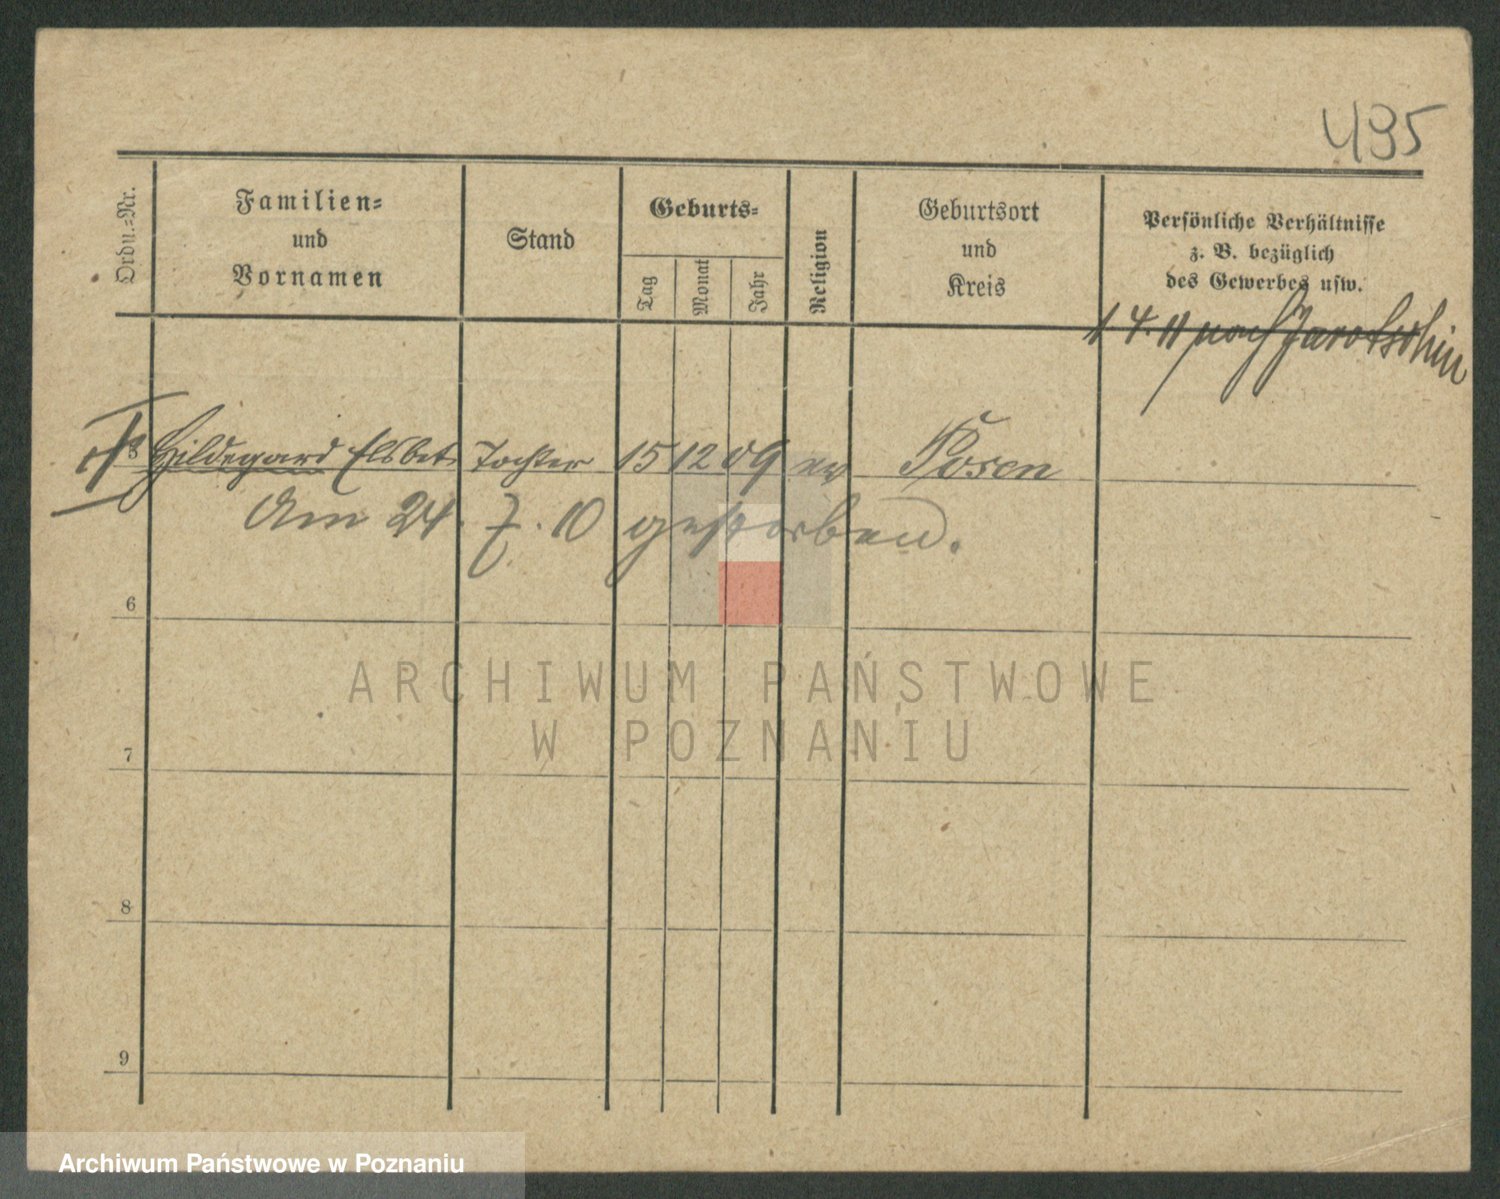 495
Ordn.-Nr.
Familien-
und
Vornamen
Stand
Geburts-
Tag
Monat
Jahr
Religion
Geburtsort
und
Kreis
Persönliche Verhältnisse
z. B. bezüglich
des Gewerbes usw.
1 4. 11 nach Jarotschin
5 Hildegard Elsbet Tochter 15 12 09 ev Posen
Am 24. 7. 10 gestorben.
6
ARCHIWUM PAŃSTWOWE
W POZNANIU
7
8
9
Archiwum Państwowe w Poznaniu